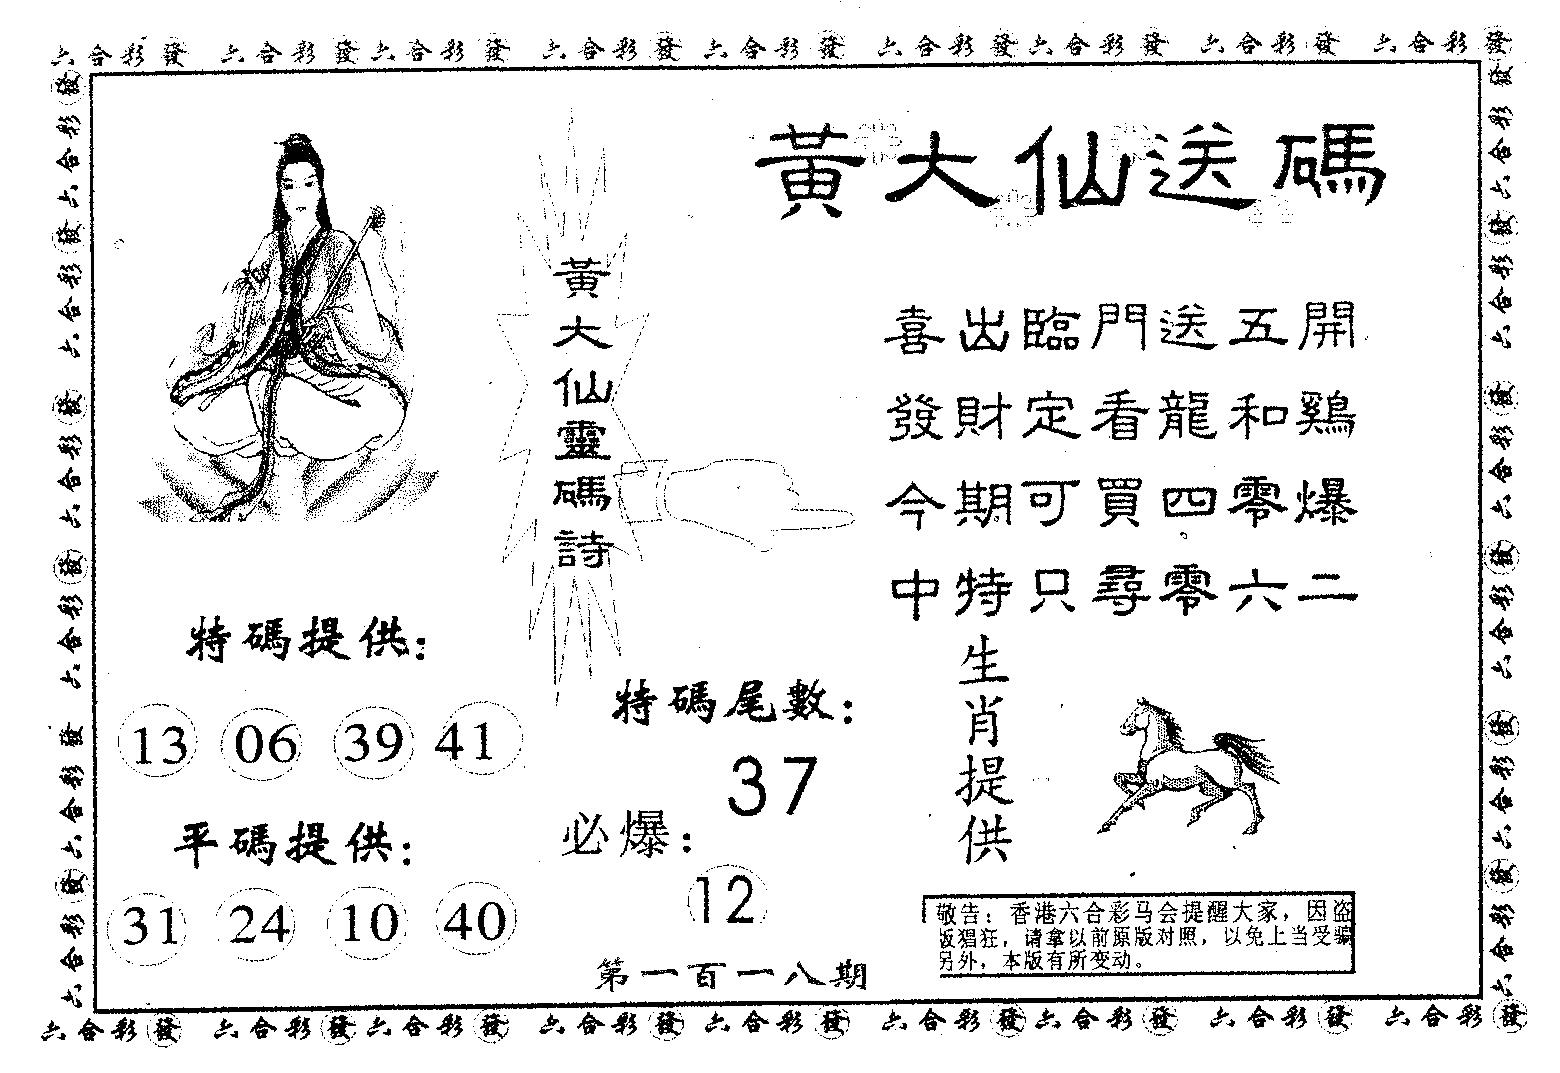 六合彩發 六合彩發 六合彩發 六合彩發 六合彩發 六合彩發 六合彩發 六合彩發 六合彩發
黃大仙送碼
黃大仙靈碼詩
喜出臨門送五開
發財定看龍和鷄
今期可買四零爆
中特只尋零六二
特碼提供：
13 06 39 41
平碼提供：
31 24 10 40
特碼尾數：
37
必爆：
12
第一百一八期
生肖提供
敬告：香港六合彩马会提醒大家，因盗
版猖狂，请拿以前原版对照，以免上当受骗
另外，本版有所变动。
六合彩發 六合彩發 六合彩發 六合彩發 六合彩發 六合彩發 六合彩發 六合彩發 六合彩發
六合彩發 六合彩發 六合彩發 六合彩發 六合彩發 六合彩發
六合彩發 六合彩發 六合彩發 六合彩發 六合彩發 六合彩發